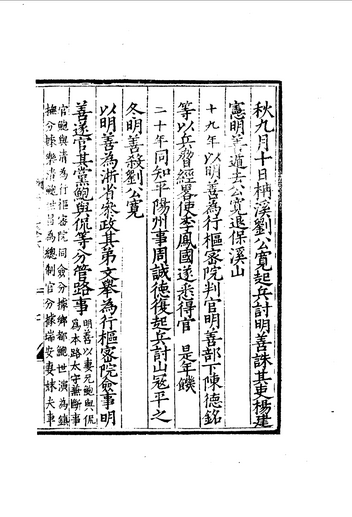 秋九月十日枏溪劉公寛起兵討明善誅其吏楊建
憲明善遁去公寛退保溪山
十九年以明善為行樞密院判官明善部下陳德銘
等以兵脅經畧使李鳳國遂悉得官　是年饑
二十年同知平陽州事周誠德復起兵討山冦平之
冬明善殺劉公寛
以明善為浙省叅政其弟文舉為行樞密院僉事明
善遂官其黨鮑與侃等分管路事
明善以妻兄鮑與侃
為本路太守兼斷事
官鮑與清為行樞密院同僉分據鄉都鮑世演為鎮
撫分據樂清鮑世昌為總制官分據瑞安妻妹夫車